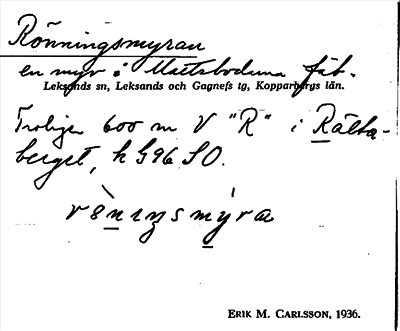 Rönningsmyran
en myr i Mattsbodarna fäb.
Leksands sn, Leksands och Gagnefs tg, Kopparbergs län.
Troligen 600 m V "R" i Rälta-
berget, h 596 SO.
ERIK M. CARLSSON, 1936.